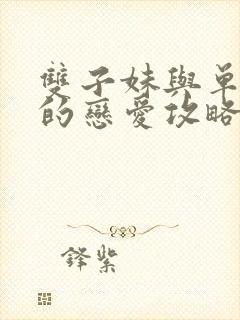 雙子妹與單
的戀愛攻略
鋒紫